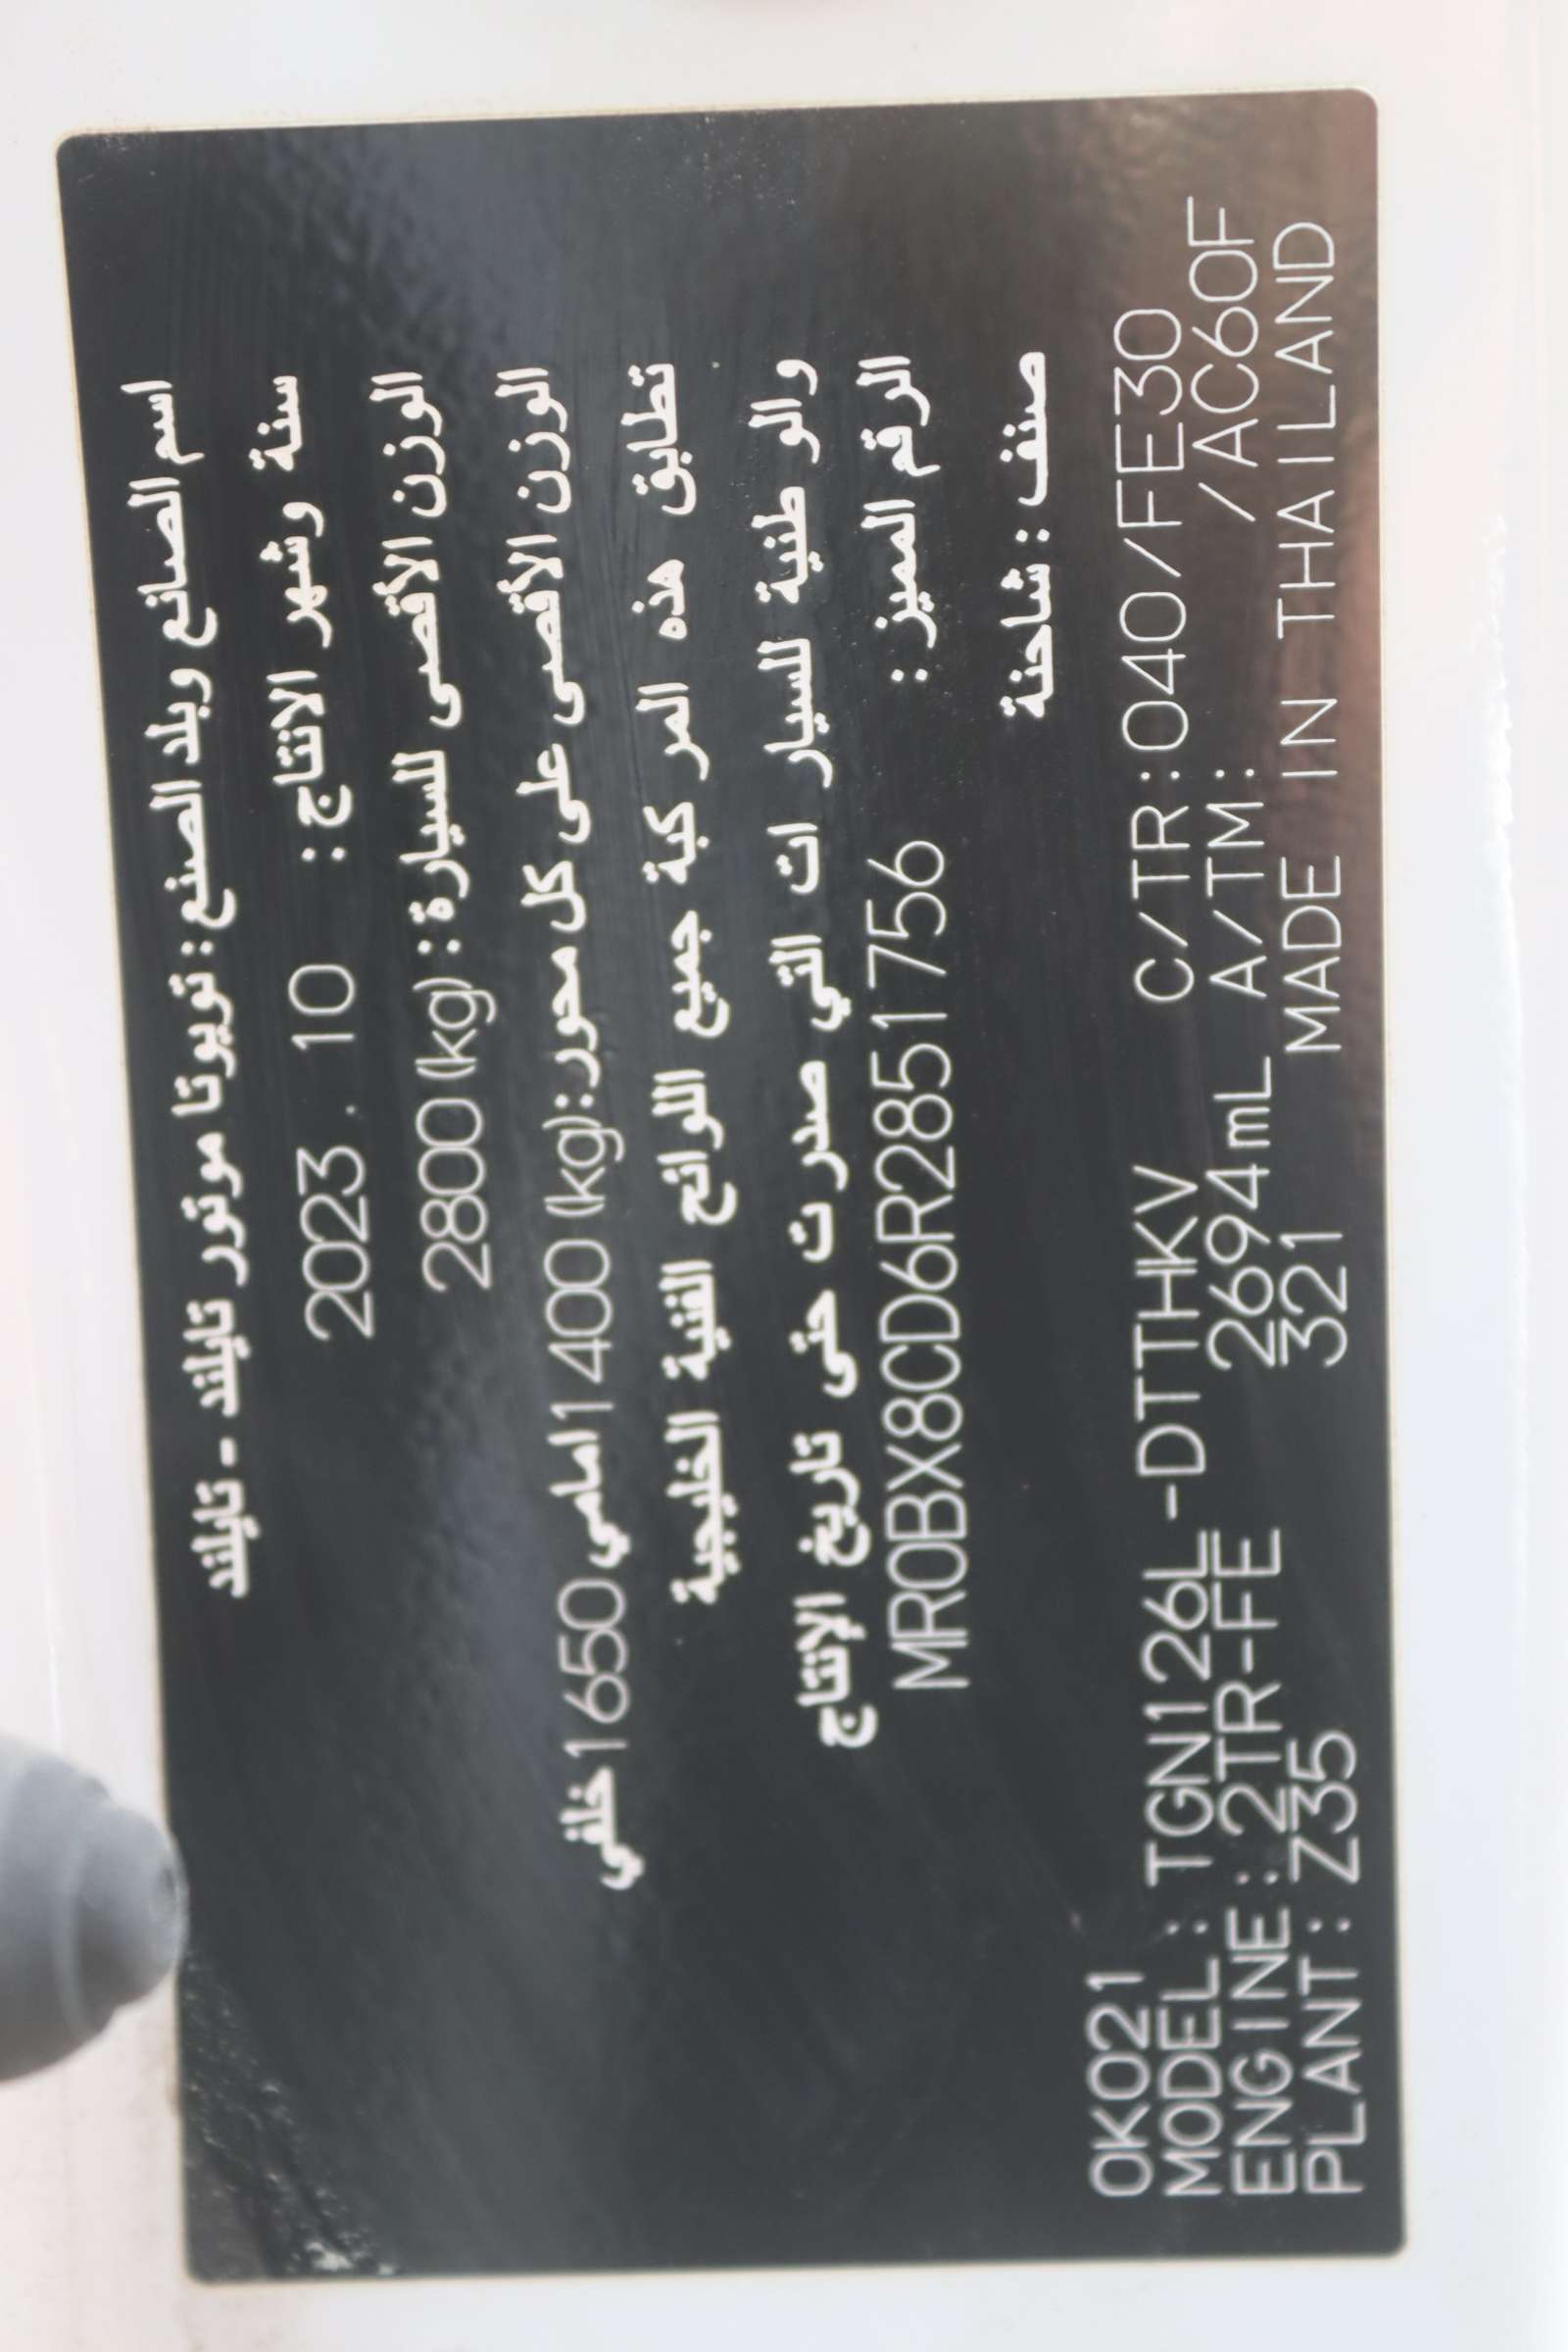 اسم الصانع وبلد الصنع : تويوتا موتور تايلند - تايلند
سنة وشهر الانتاج : 2023 . 10
الوزن الأقصى للسيارة : (kg) 2800
الوزن الأقصى على كل محور: (kg) 1400 امامي 1650 خلفي
تطابق هذه المركبة جميع اللوائح الفنية الخليجية
والوطنية للسيارات التي صدرت حتى تاريخ الإنتاج
الرقم المميز : MR0BX8CD6R2851756
صنف : شاحنة
0K021
MODEL : TGN126L-DTTHKV C/TR:040/FE30
ENGINE : 2TR-FE 2694mL A/TM: /AC60F
PLANT: Z35 321 MADE IN THAILAND